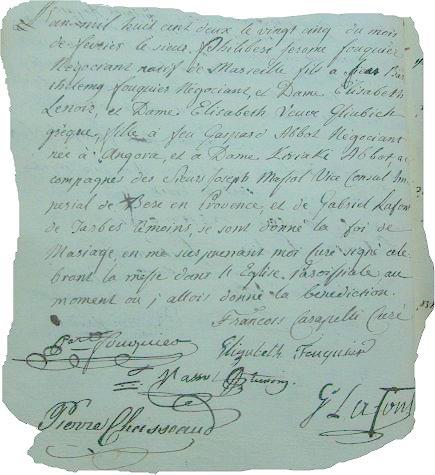 L'an mil huit cent deux le vingt cinq du mois
de février le sieur Philibert Jerome fouquier
Négociant natif de Marseille fils a Jean Bar
thelemy fouquier Négociant, et Dame Elisabeth
Lenoir, et Dame Elisabeth Veuve
grèque, fille à feu Gaspard Abbot Négociant
née à Angora, et à Dame Kiriaki Abbot, ac
compagnés des Sieurs Joseph Massol Vice Consul Im
perial de Bese en Provence, et de Gabriel Lafon
de Tarbes témoins, se sont donné la foi de
Mariage, en me surprenant moi Curé signé cele
brant la messe dans l'Eglise paroissiale au
moment où j'allois donné la benediction.
François Carapelli Curé
Fouquier
Elizabeth Fouquier
Massol
G. Lafont
Pierre Chasseaud